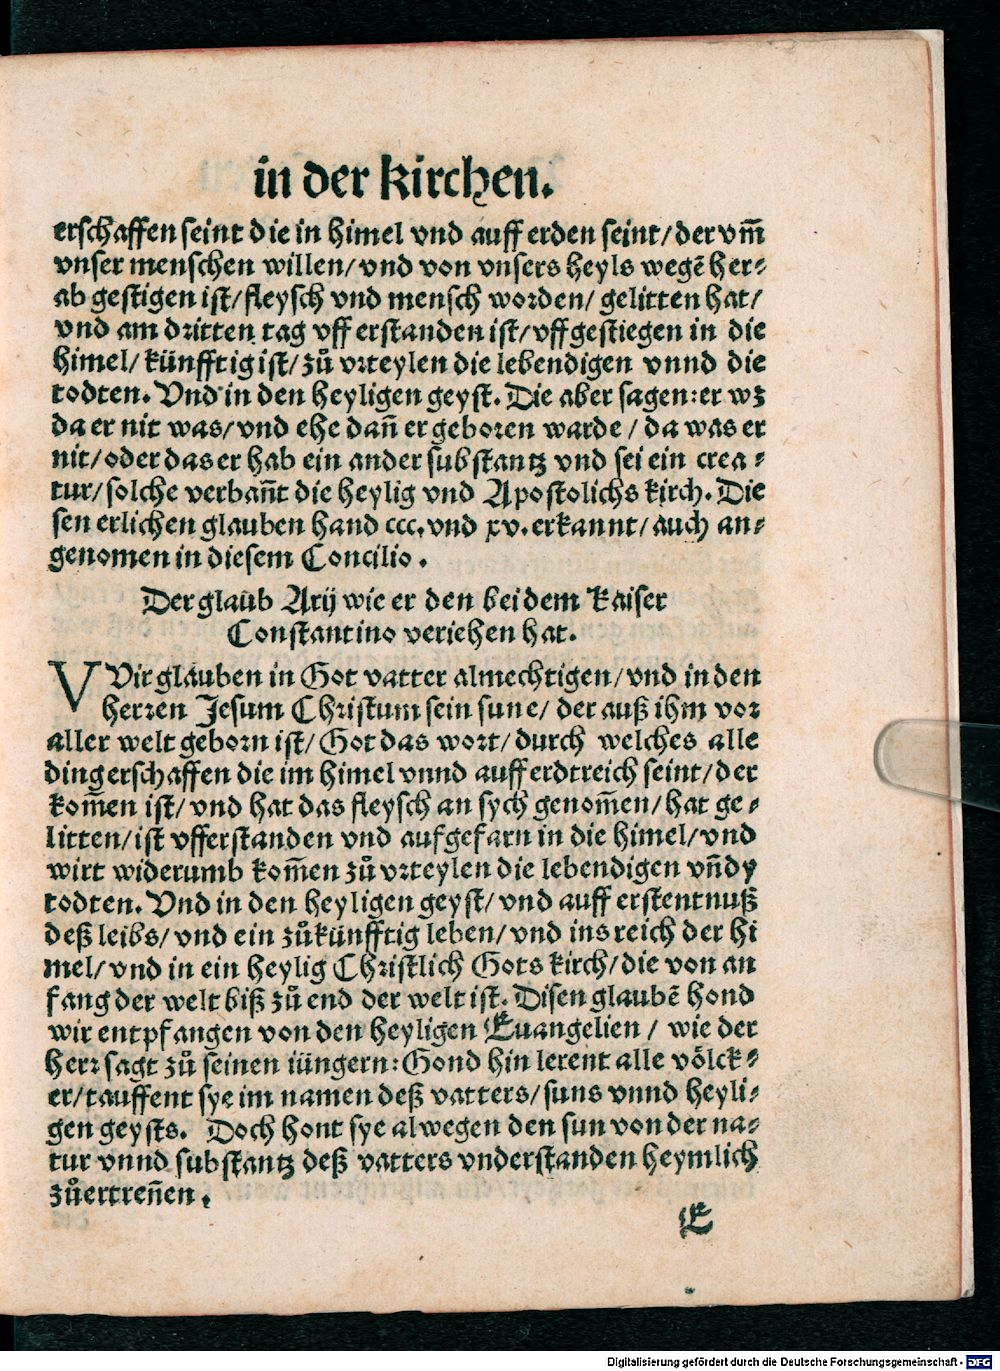 in der kirchen.
erschaffen seint die in himel vnd auff erden seint/ der vm̃
vnser menschen willen/ vnd von vnsers heyls wegẽ her⸗
ab gestigen ist/ fleysch vnd mensch worden/ gelitten hat/
vnd am dritten tag vff erstanden ist/ vffgestiegen in die
himel/ künfftig ist/ zů vrteylen die lebendigen vnnd die
todten. Vnd in den heyligen geyst. Die aber sagen: er wz
da er nit was/ vnd ehe dañ er geboren warde / da was er
nit/ oder das er hab ein ander substantz vnd sei ein crea ⸗
tur/ solche verbañt die heylig vnd Apostolichs kirch. Die
sen erlichen glauben hand ccc. vnd xv. erkannt/ auch an⸗
genomen in diesem Concilio.
Der glaub Arij wie er den bei dem Kaiser
Constantino veriehen hat.
VVir glauben in Got vatter almechtigen/ vnd in den
herren Jesum Christum sein sune/ der auß ihm vor
aller welt geborn ist/ Got das wort/ durch welches alle
ding erschaffen die im himel vnnd auff erdtreich seint/ der
kom̃en ist/ vnd hat das fleysch an sych genom̃en/ hat ge⸗
litten/ ist vfferstanden vnd aufgefarn in die himel/ vnd
wirt widerumb kom̃en zů vrteylen die lebendigen vñdy
todten. Vnd in den heyligen geyst/ vnd auff erstentnuß
deß leibs/ vnd ein zůkünfftig leben/ vnd ins reich der hi
mel/ vnd in ein heylig Christlich Gots kirch/ die von an
fang der welt biß zů end der welt ist. Disen glaubẽ hond
wir entpfangen von den heyligen Euangelien / wie der
herr sagt zů seinen iüngern: Gond hin lerent alle võlck⸗
er/ tauffent sye im namen deß vatters/ suns vnnd heyli⸗
gen geysts. Doch hont sye alwegen den sun von der na⸗
tur vnnd substantz deß vatters vnderstanden heymlich
zůertreñen.
E
Digitalisierung gefördert durch die Deutsche Forschungsgemeinschaft - DFG